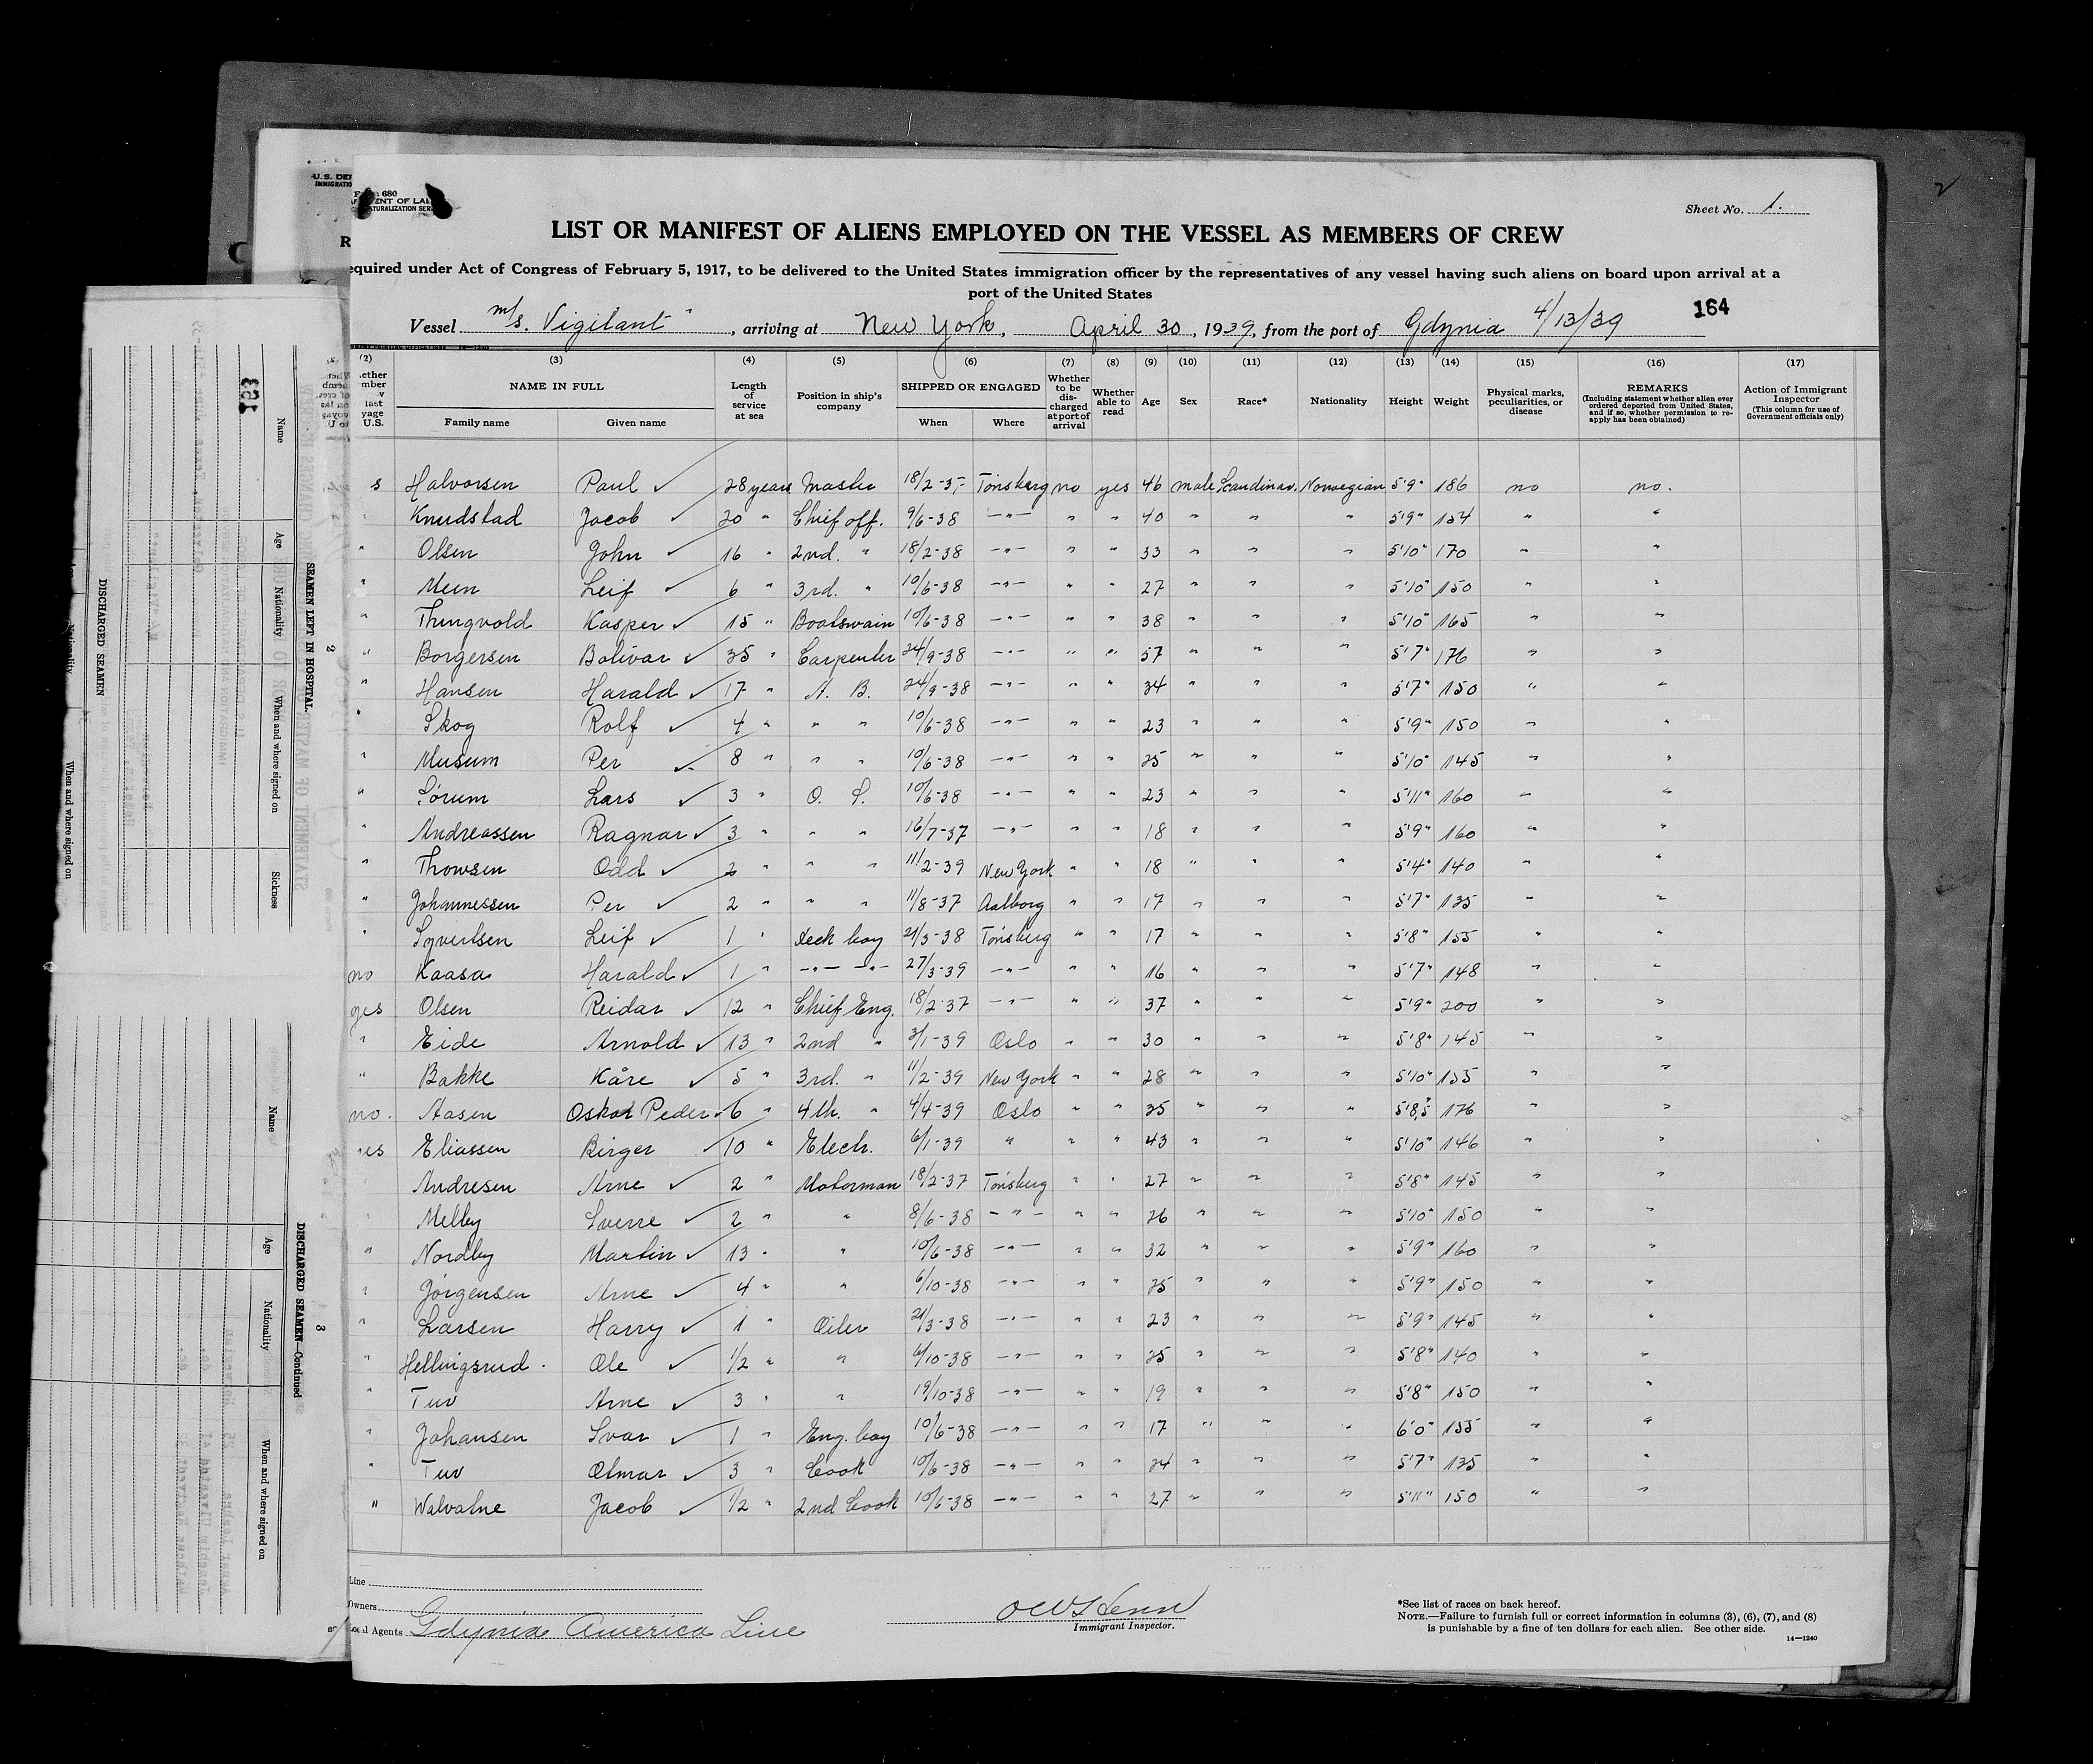 Sheet No. 1.
680
LIST OR MANIFEST OF ALIENS EMPLOYED ON THE VESSEL AS MEMBERS OF CREW
equired under Act of Congress of February 5, 1917, to be delivered to the United States immigration officer by the representatives of any vessel having such aliens on board upon arrival at a
port of the United States
164
Vessel m/s. Vigilant , arriving at New York, April 30, 1939, from the port of Gdynia 4/13/39
(2) (3) (4) (5) (6) (7) (8) (9) (10) (11) (12) (13) (14) (15) (16) (17)
NAME IN FULL Length of service at sea Position in ship's company SHIPPED OR ENGAGED Whether to be discharged at port of arrival Whether able to read Age Sex Race* Nationality Height Weight Physical marks, peculiarities, or disease REMARKS (Including statement whether alien ever ordered deported from United States, and if so, whether permission to reapply has been obtained) Action of Immigrant Inspector (This column for use of Government officials only)
Family name Given name When Where
s Halvorsen Paul ✓ 28 years Master Tönsberg no yes 46 male Scandinav. Norwegian 5'9" 186 no no.
Knudstad Jacob ✓ 20 " Chief off. 9/6-38 —"— " " 40 " " " 5'9" 154 " "
" Olsen John ✓ 16 " 2nd. " 18/2-38 —"— " " 33 " " " 5'10" 170 " "
" Meen Leif ✓ 6 " 3rd. " 10/6-38 —"— " " 27 " " " 5'10" 150 " "
" Thingvold Kasper ✓ 15 " Boatswain 10/6-38 —"— " " 38 " " " 5'10" 165 " "
" Borgersen Bolivar ✓ 35 " Carpenter 24/9-38 —"— " " 57 " " " 5'7" 176 " "
" Hansen Harald ✓ 17 " A. B. 24/9-38 —"— " " 34 " " " 5'7" 150 " "
" Skog Rolf ✓ 4 " " " 10/6-38 —"— " " 23 " " " 5'9" 150 " "
" Musum Per ✓ 8 " " " 10/6-38 —"— " " 25 " " " 5'10" 145 " "
" Sörum Lars ✓ 3 " O. S. 10/6-38 —"— " " 23 " " " 5'11" 160 " "
" Andreassen Ragnar ✓ 3 " " " 16/7-37 —"— " " 18 " " " 5'9" 160 " "
" Thowsen Odd ✓ 2 " " " 11/2-39 New York " " 18 " " " 5'4" 140 " "
" Johannessen Per ✓ 2 " " " 11/8-37 Aalborg " " 17 " " " 5'7" 135 " "
" Syvertsen Leif ✓ 1 " Deck boy 21/3-38 Tönsberg " " 17 " " " 5'8" 155 " "
no Kaasa Harald ✓ 1 " —"— —"— 27/3-39 —"— " " 16 " " " 5'7" 148 " "
yes Olsen Reidar ✓ 12 " Chief Eng. 18/2-37 —"— " " 37 " " " 5'9" 200 " "
" Eide Arnold ✓ 13 " 2nd " 3/1-39 Oslo " " 30 " " " 5'8" 145 " "
" Bakke Kåre ✓ 5 " 3rd. " 11/2-39 New York " " 28 " " " 5'10" 155 " "
no. Aasen Oskar Peder ✓ 6 " 4th. " 4/4-39 Oslo " " 25 " " " 5'8,5" 176 " "
es Eliassen Birger ✓ 10 " Electr. 6/1-39 " " " 43 " " " 5'10" 146 " "
Andresen Arne ✓ 2 " Motorman 18/2-37 Tönsberg " " 27 " " " 5'8" 145 " "
" Melby Sverre ✓ 2 " " 8/6-38 —"— " " 26 " " " 5'10" 150 " "
" Nordby Martin ✓ 13 " " 10/6-38 —"— " " 32 " " " 5'9" 160 " "
" Jörgensen Arne ✓ 4 " " 6/10-38 —"— " " 25 " " " 5'9" 150 " "
" Larsen Harry ✓ 1 " Oiler 21/3-38 —"— " " 23 " " " 5'9" 145 " "
" Hellingsrud Ole ✓ 1/2 " " 6/10-38 —"— " " 25 " " " 5'8" 140 " "
" Tuv Arne ✓ 3 " " 19/10-38 —"— " " 19 " " " 5'8" 150 " "
" Johansen Ivar ✓ 1 " Eng. boy 10/6-38 —"— " " 17 " " " 6'0" 155 " "
" Tuv Olmar ✓ 3 " Cook 10/6-38 —"— " " 24 " " " 5'7" 135 " "
" Walvatne Jacob ✓ 1/2 " 2nd Cook 10/6-38 —"— " " 27 " " " 5'11" 150 " "
Line
Owners
Agents Gdynia America Line
Immigrant Inspector.
*See list of races on back hereof.
NOTE.—Failure to furnish full or correct information in columns (3), (6), (7), and (8)
is punishable by a fine of ten dollars for each alien. See other side.
14—1240
SEAMEN LEFT IN HOSPITAL
2
Name Age Nationality When and where signed on Sickness
DISCHARGED SEAMEN
Nationality When and where signed on
3
DISCHARGED SEAMEN—Continued
Name Age Nationality When and where signed on